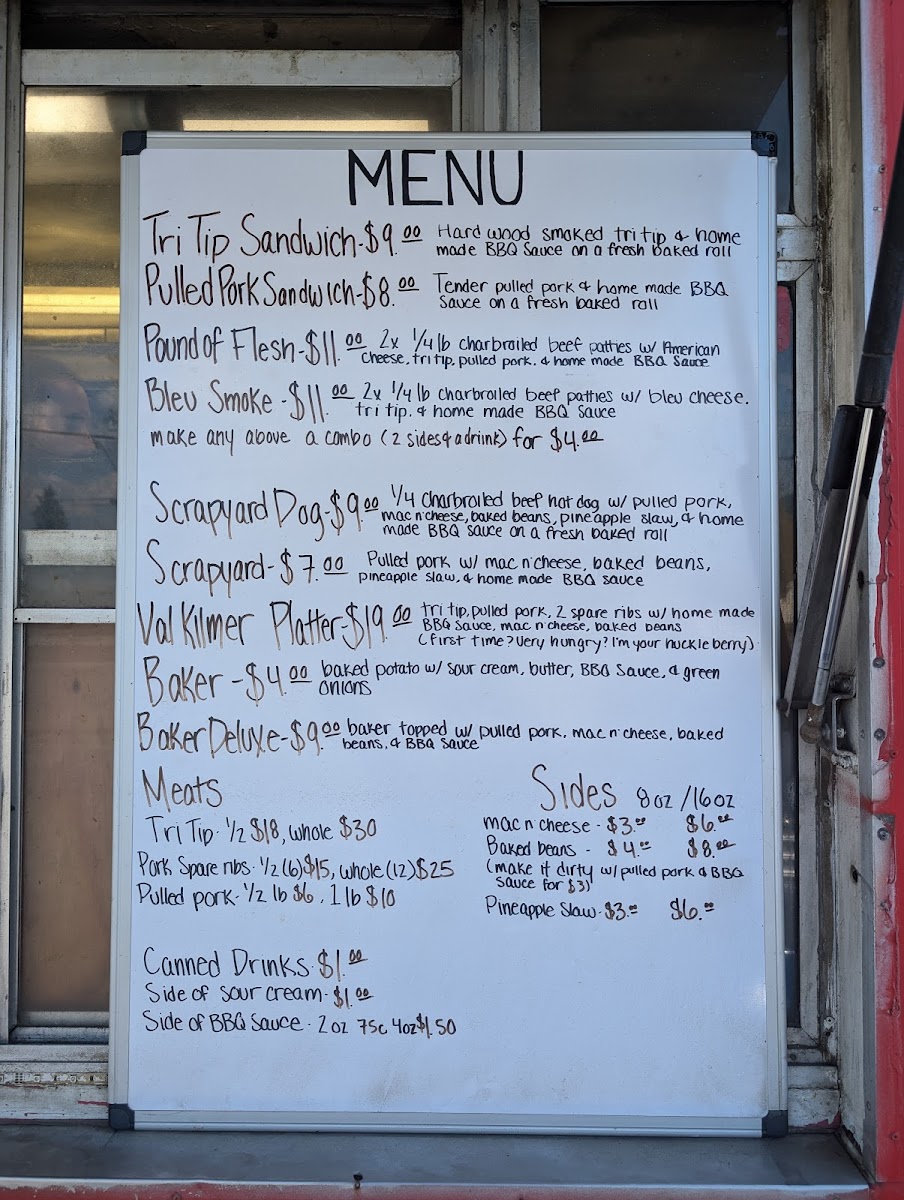 MENU
Tri Tip Sandwich-$9.00 Hard wood smoked tri tip & home
made BBQ Sauce on a fresh baked roll
Pulled Pork Sandwich-$8.00 Tender pulled pork & home made BBQ
Sauce on a fresh baked roll
Pound of Flesh-$11.00 2x 1/4 lb charbroiled beef patties w/ American
cheese, tri tip, pulled pork, & home made BBQ Sauce
Bleu Smoke-$11.00 2x 1/4 lb charbroiled beef patties w/ bleu cheese.
tri tip, & home made BBQ Sauce
make any above a combo (2 sides & a drink) for $4.00
Scrapyard Dog-$9.00 1/4 charbroiled beef hot dog w/ pulled pork,
mac n' cheese, baked beans, pineapple slaw, & home
made BBQ Sauce on a fresh baked roll
Scrapyard-$7.00 Pulled pork w/ mac n' cheese, baked beans,
pineapple slaw, & home made BBQ sauce
Val Kilmer Platter-$19.00 tri tip, pulled pork, 2 spare ribs w/ home made
BBQ Sauce, mac n' cheese, baked beans
(first time? Very hungry? I'm your huckleberry)
Baker-$4.00 baked potato w/ sour cream, butter, BBQ Sauce, & green
onions
Baker Deluxe-$9.00 baker topped w/ pulled pork, mac n' cheese, baked
beans, & BBQ Sauce
Meats
Tri Tip- 1/2 $18, whole $30
Pork Spare ribs- 1/2 (6) $15, whole (12) $25
Pulled pork- 1/2 lb $6, 1 lb $10
Sides 8oz /16oz
mac n' cheese - $3.00 $6.00
Baked beans - $4.00 $8.00
(make it dirty w/ pulled pork & BBQ
Sauce for $3)
Pineapple Slaw-$3.00 $6.00
Canned Drinks-$1.00
Side of sour cream-$1.00
Side of BBQ Sauce- 2oz 75c 4oz $1.50